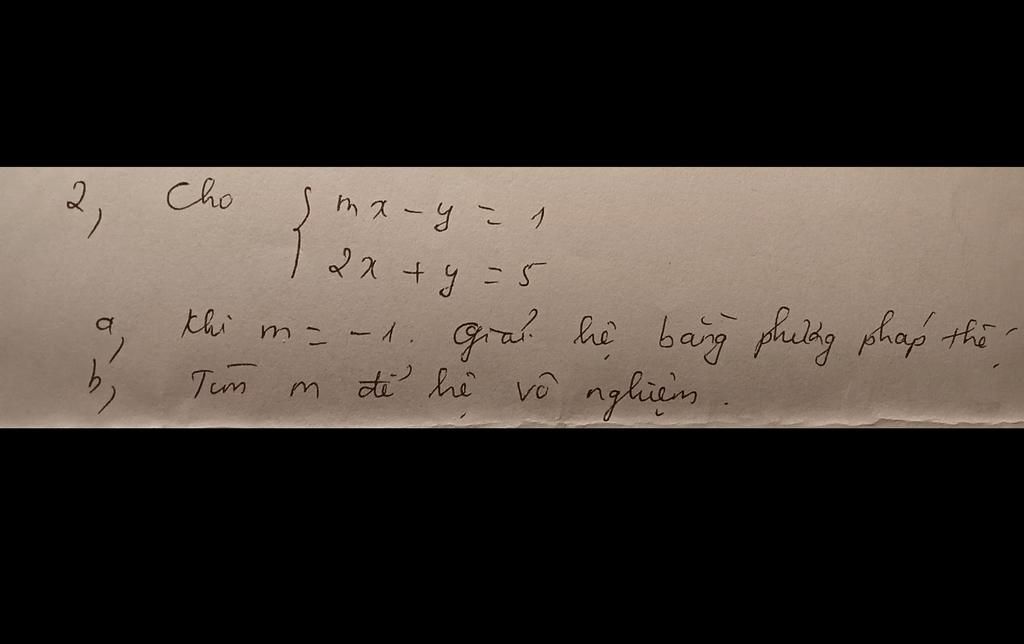 2, Cho { mx - y = 1
2x + y = 5
a, Khi m = -1. Giải hệ bằng phương pháp thế.
b, Tìm m để hệ vô nghiệm.